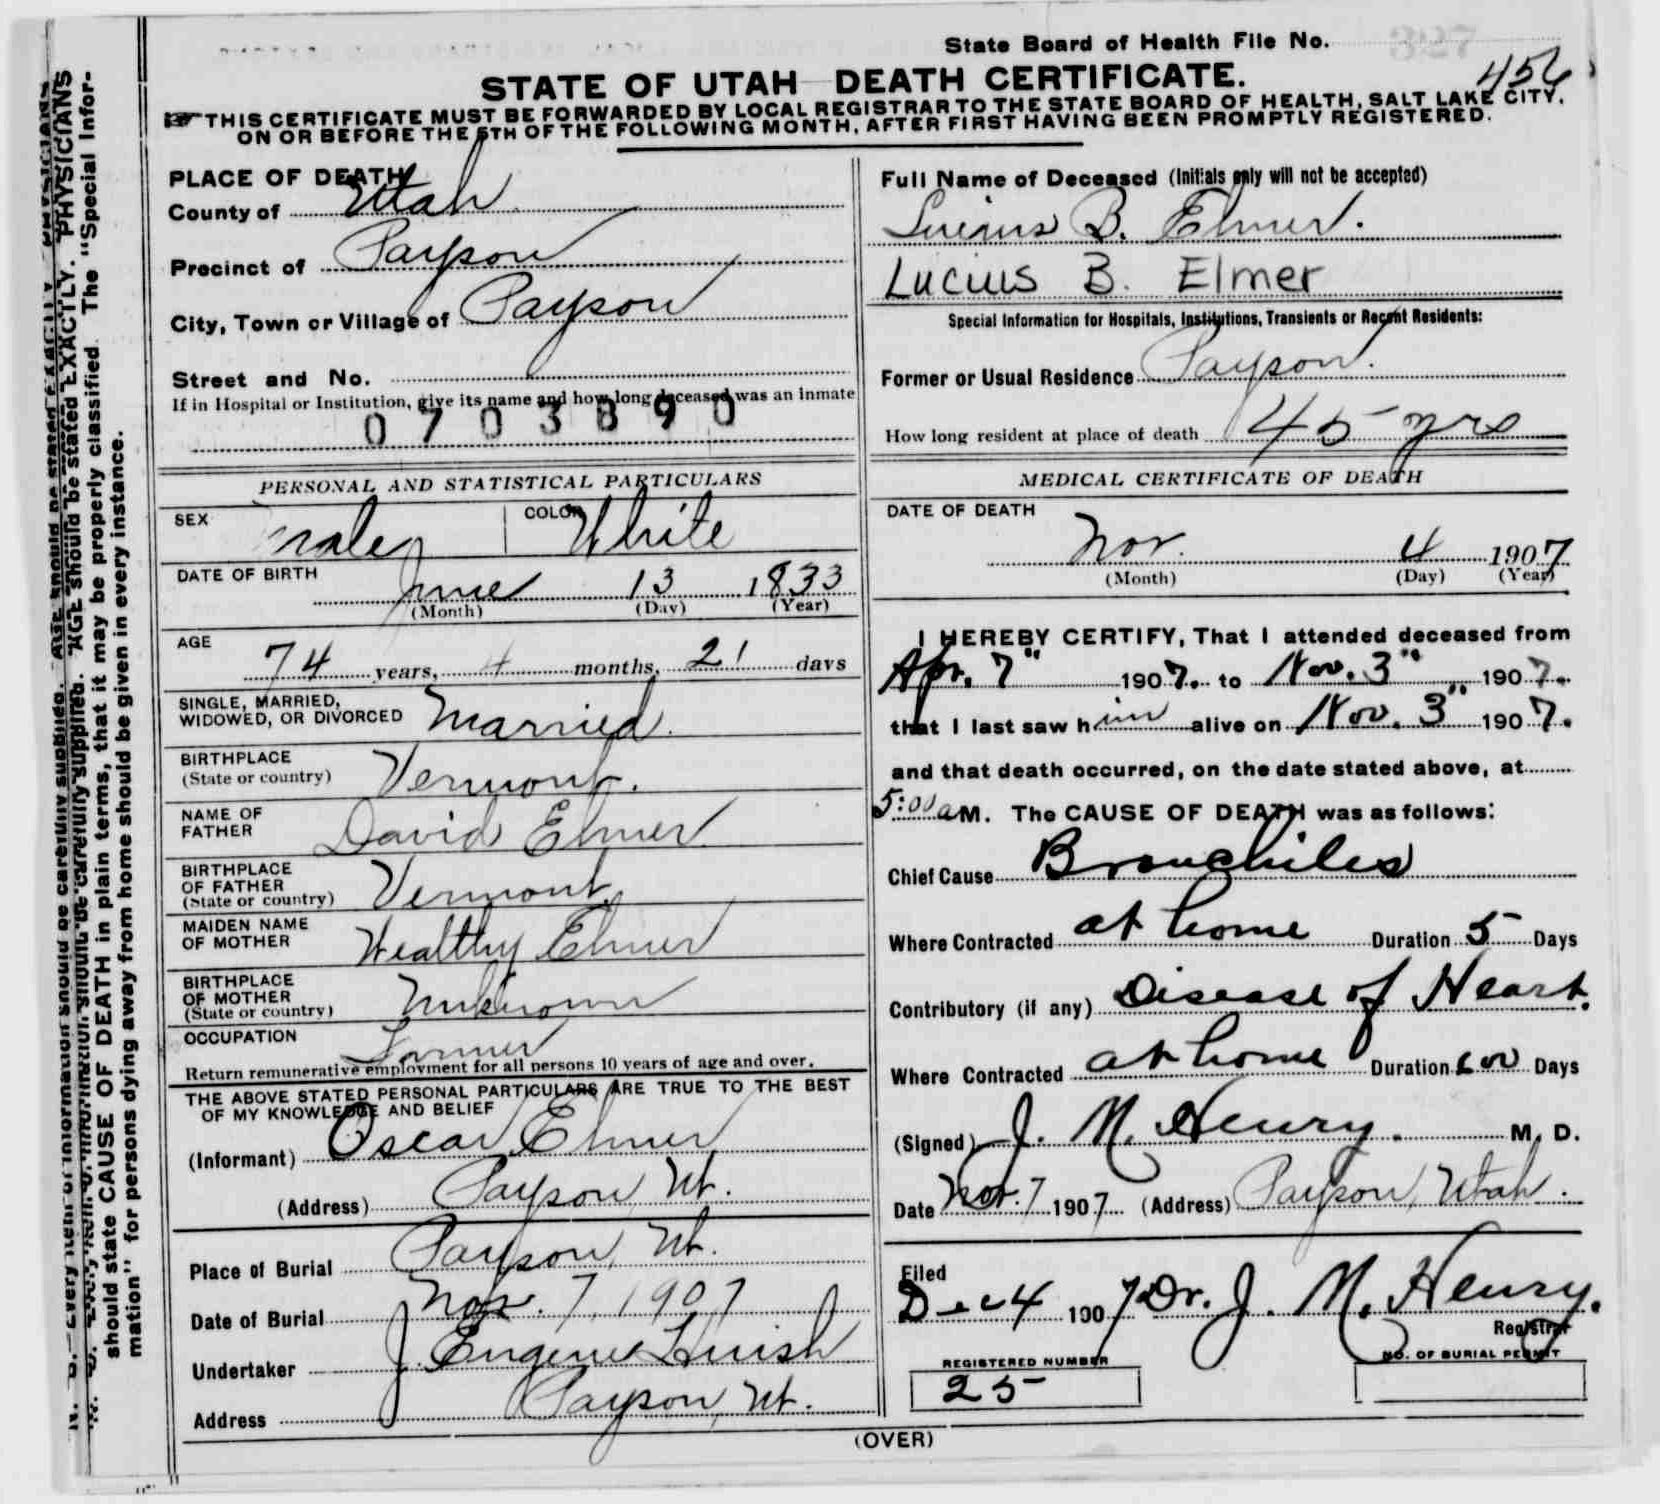 State Board of Health File No.
327
456
STATE OF UTAH—DEATH CERTIFICATE.
☞THIS CERTIFICATE MUST BE FORWARDED BY LOCAL REGISTRAR TO THE STATE BOARD OF HEALTH, SALT LAKE CITY,
ON OR BEFORE THE 5TH OF THE FOLLOWING MONTH, AFTER FIRST HAVING BEEN PROMPTLY REGISTERED.
PLACE OF DEATH
County of Utah
Precinct of Payson
City, Town or Village of Payson
Street and No.
If in Hospital or Institution, give its name and how long deceased was an inmate
0703890
PERSONAL AND STATISTICAL PARTICULARS
SEX male COLOR White
DATE OF BIRTH June 13 1833
(Month) (Day) (Year)
AGE 74 years, 4 months, 21 days
SINGLE, MARRIED,
WIDOWED, OR DIVORCED Married
BIRTHPLACE
(State or country) Vermont.
NAME OF
FATHER David Elmer
BIRTHPLACE
OF FATHER
(State or country) Vermont
MAIDEN NAME
OF MOTHER Wealthy Elmer
BIRTHPLACE
OF MOTHER
(State or country) Unknown
OCCUPATION Farmer
Return remunerative employment for all persons 10 years of age and over.
THE ABOVE STATED PERSONAL PARTICULARS ARE TRUE TO THE BEST
OF MY KNOWLEDGE AND BELIEF
(Informant) Oscar Elmer
(Address) Payson, Ut.
Place of Burial Payson, Ut.
Date of Burial Nov. 7, 1907
Undertaker J. Eugene Huish
Address Payson, Ut.
Full Name of Deceased (Initials only will not be accepted)
Lucius B. Elmer.
Lucius B. Elmer
Special Information for Hospitals, Institutions, Transients or Recent Residents:
Former or Usual Residence Payson.
How long resident at place of death 45 yrs
MEDICAL CERTIFICATE OF DEATH
DATE OF DEATH
Nov. 4 1907
(Month) (Day) (Year)
I HEREBY CERTIFY, That I attended deceased from
Apr. 7" 1907. to Nov. 3" 1907.
that I last saw him alive on Nov. 3" 1907.
and that death occurred, on the date stated above, at
5:00 a M. The CAUSE OF DEATH was as follows:
Chief Cause Bronchitis
Where Contracted at home Duration 5 Days
Contributory (if any) Disease of Heart.
Where Contracted at home Duration 600 Days
(Signed) J. M. Henry. M. D.
Date Nov. 7 1907 (Address) Payson, Utah.
Filed
Dec 4 1907 Dr. J. M. Henry.
Registrar
REGISTERED NUMBER
25
NO. OF BURIAL PERMIT
(OVER)
N. B.—Every item of information should be carefully supplied. AGE should be stated EXACTLY. PHYSICIANS
should state CAUSE OF DEATH in plain terms, that it may be properly classified. The "Special Infor-
mation" for persons dying away from home should be given in every instance.